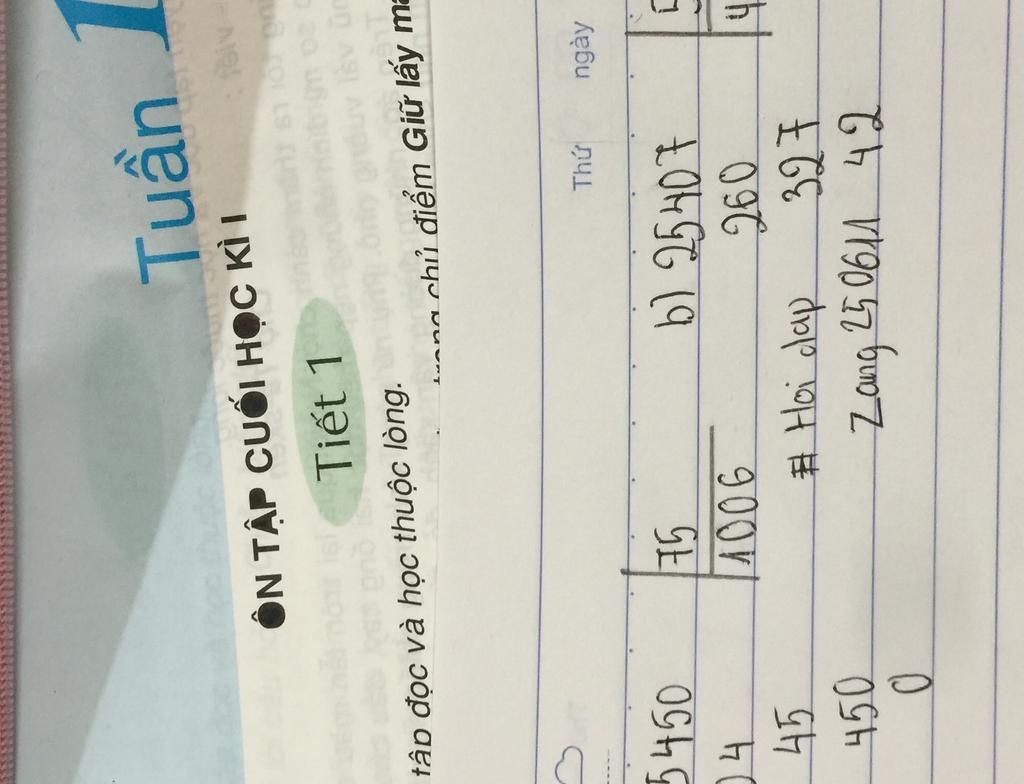 Tuần 1
ÔN TẬP CUỐI HỌC KÌ I
Tiết 1
chủ điểm Giữ lấy
tập đọc và học thuộc lòng.
Thứ ngày
5450 75 b) 25407 5
04 1006 260 4
45 # Hoi dap 327
450 Zang250611 42
0